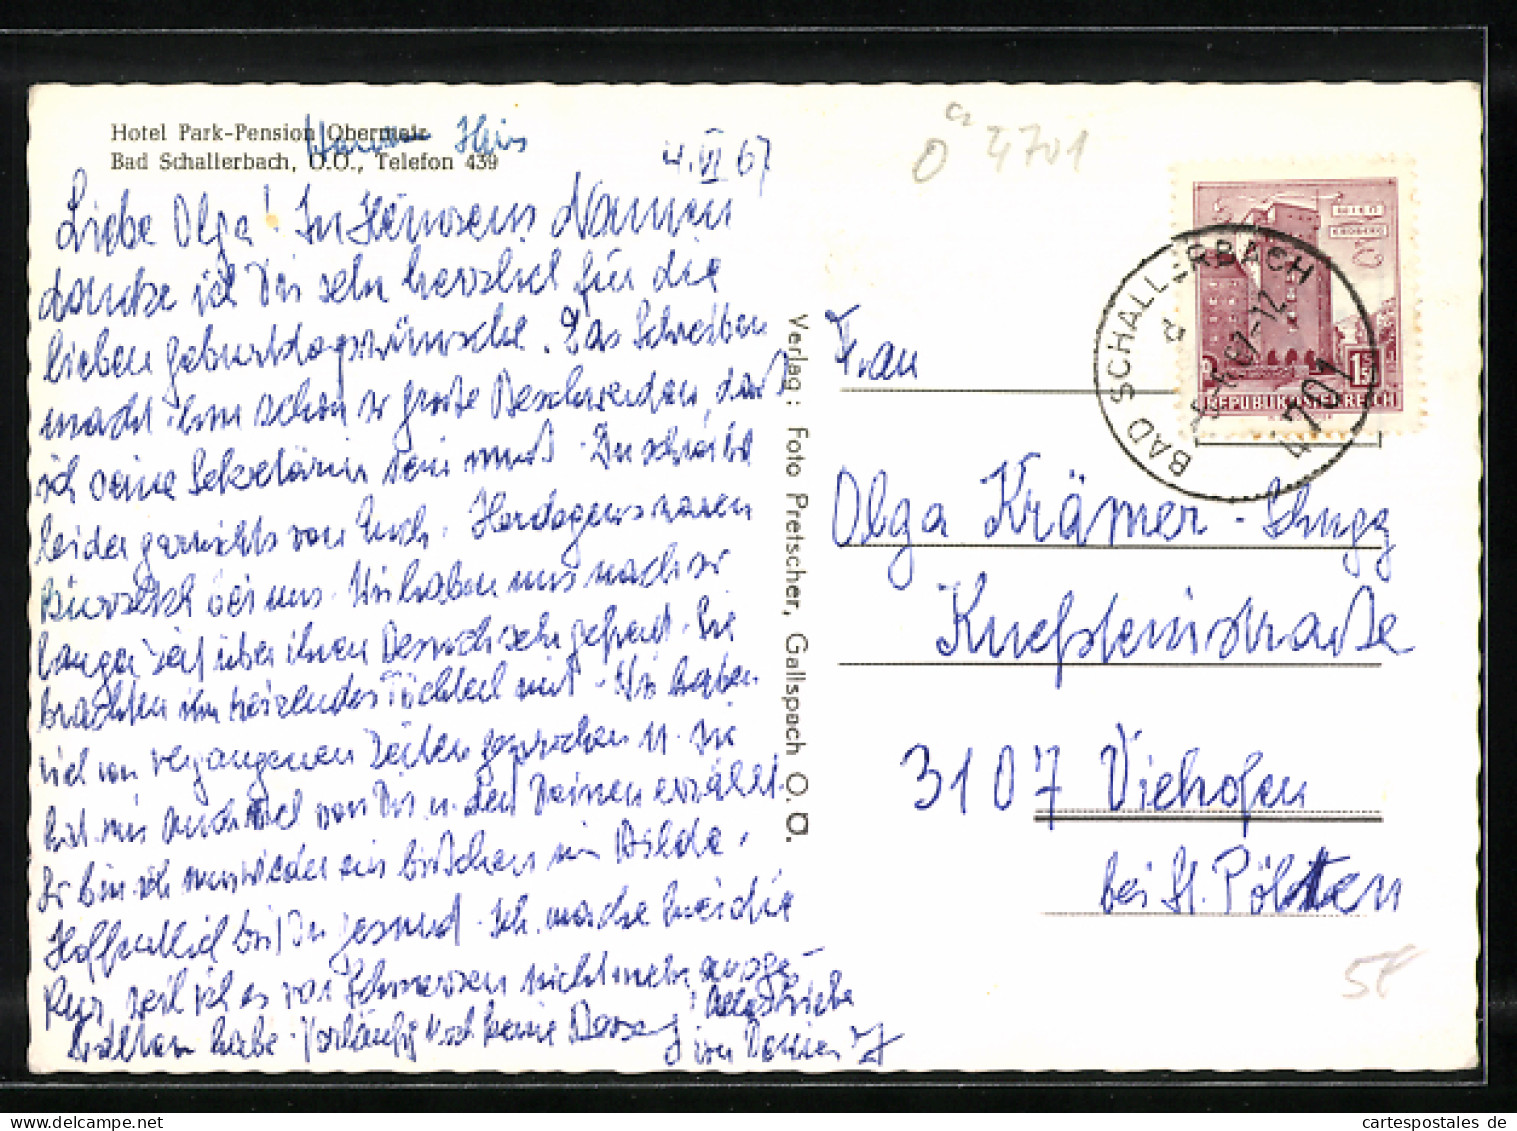 Hotel Park-Pension Obermair
Bad Schallerbach, O.Ö., Telefon 439
Haus
4.VI 67
4701
Liebe Olga! In Namen
danke ich Dir sehr herzlich für die
lieben Geburtstagswünsche. Das Schreiben
macht ihm schon so große Beschwerden, daß
ich seine Sekretärin sein muß. Du schreibst
leider garnichts von Euch. waren
bei uns. Wir haben uns nach so
langer Zeit über ihren Besuch sehr gefreut. Sie
brachten ihr reizendes Töchterl mit. Wir haben
viel von vergangenen Zeiten gesprochen u. sie
hat mir auch viel von Dir u. den Deinen erzählt.
So bin ich nun wieder ein bißchen im Bilde.
Hoffentlich bist Du gesund. Ich mache hier die
Kur, weil ich es vor Schmerzen nicht mehr ausge-
halten habe. Vorläufig noch keine Besserung! Alles Liebe
von Deiner
Verlag: Foto Pretscher, Gallspach O.Ö.
BAD SCHALLERBACH
4701
WIEN
ERDBERG
1.50
REPUBLIK ÖSTERREICH
Frau
Olga Krämer-
Kuefsteinstraße
3107 Viehofen
bei St. Pölten
cartespostales de